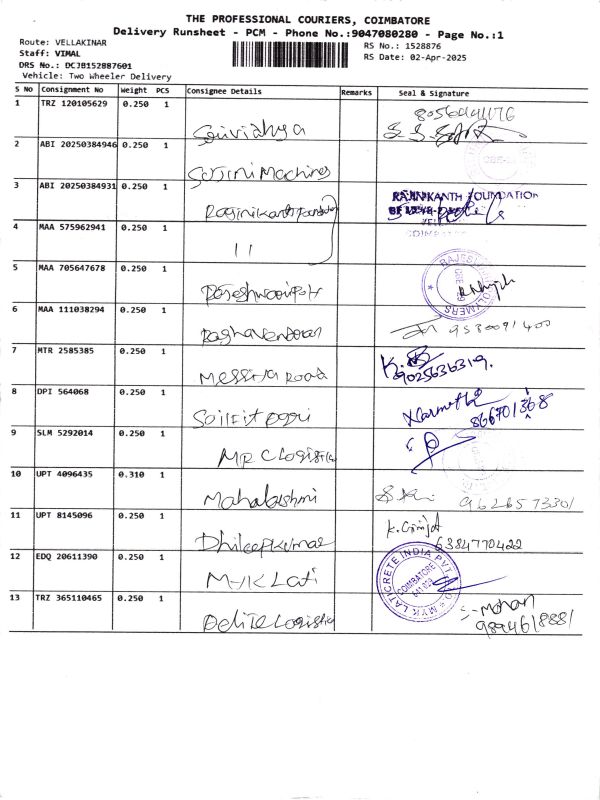 THE PROFESSIONAL COURIERS, COIMBATORE
Delivery Runsheet - PCM - Phone No.:9047080280 - Page No.:1
Route: VELLAKINAR
Staff: VIMAL
DRS No.: DCJB152887601
Vehicle: Two Wheeler Delivery
RS No.: 1528876
RS Date: 02-Apr-2025
S No Consignment No Weight PCS Consignee Details Remarks Seal & Signature
1 TRZ 120105629 0.250 1
2 ABI 20250384946 0.250 1 Machines
3 ABI 20250384931 0.250 1 RAJINIKANTH FOUNDATION
4 MAA 575962941 0.250 1 11
5 MAA 705647678 0.250 1
6 MAA 111038294 0.250 1 9530091400
7 MTR 2585385 0.250 1 Road 9025636319.
8 DPI 564068 0.250 1 866701368
9 SLM 5292014 0.250 1 MRC Logistics
10 UPT 4096435 0.310 1 Mahalakshmi 9626573301
11 UPT 8145096 0.250 1 Dhileepkumar 6384770422
12 EDQ 20611390 0.250 1 MYK Lati MYK LATICRETE INDIA PVT COIMBATORE
13 TRZ 365110465 0.250 1 Delite Logistics S. Mohan
9894618881